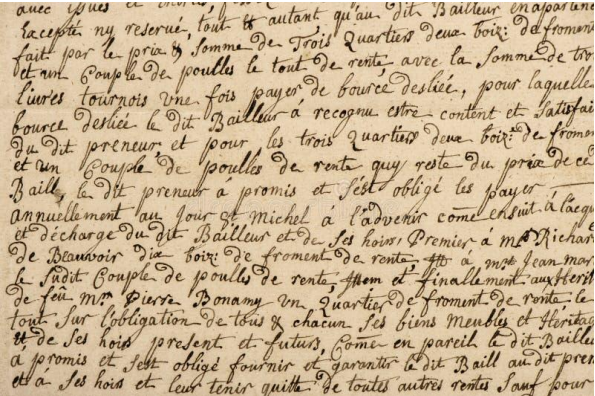 avec yssues et
Excepté ny reservé, tout & autant qu'au dit Bailleur en apartene
fait par le prix & Somme de Trois Quartiers deux boiz: de froment
et un Couple de poulles le tout de rente avec la Somme de tro
livres tournois vne fois payer de bource desliée, pour laquelle
bource desliée le dit Bailleur à recognu estre content et Satisfai
du dit preneur et pour les trois Quartiers deux boiz: de frome
et un Couple de poulles de rente quy reste du prix de ce
Baill, le dit preneur à promis et s'est obligé les payer
annuellement au Jour St Michel à l'advenir come ensuit à l'acqu
et décharge du dit Bailleur et de Ses hoirs, Premier à Mr Richar
de Beauvoir dix boiz: de froment de rente, à mr Jean mar
le Sudit Couple de poulles de rente, Item et finallement aux Herit
de feu Mr Pierre Bonamy vn Quartier de froment de rente le
tout Sur l'obligation de tous & chacun Ses biens Meubles et Heritag
& de Ses hoirs present et futurs Come en pareil le dit Bailleu
à promis et s'est obligé fournir et garantir le dit Baill au dit pren
et à Ses hoirs et leur tenir quitte de toutes autres rentes Sauf pour